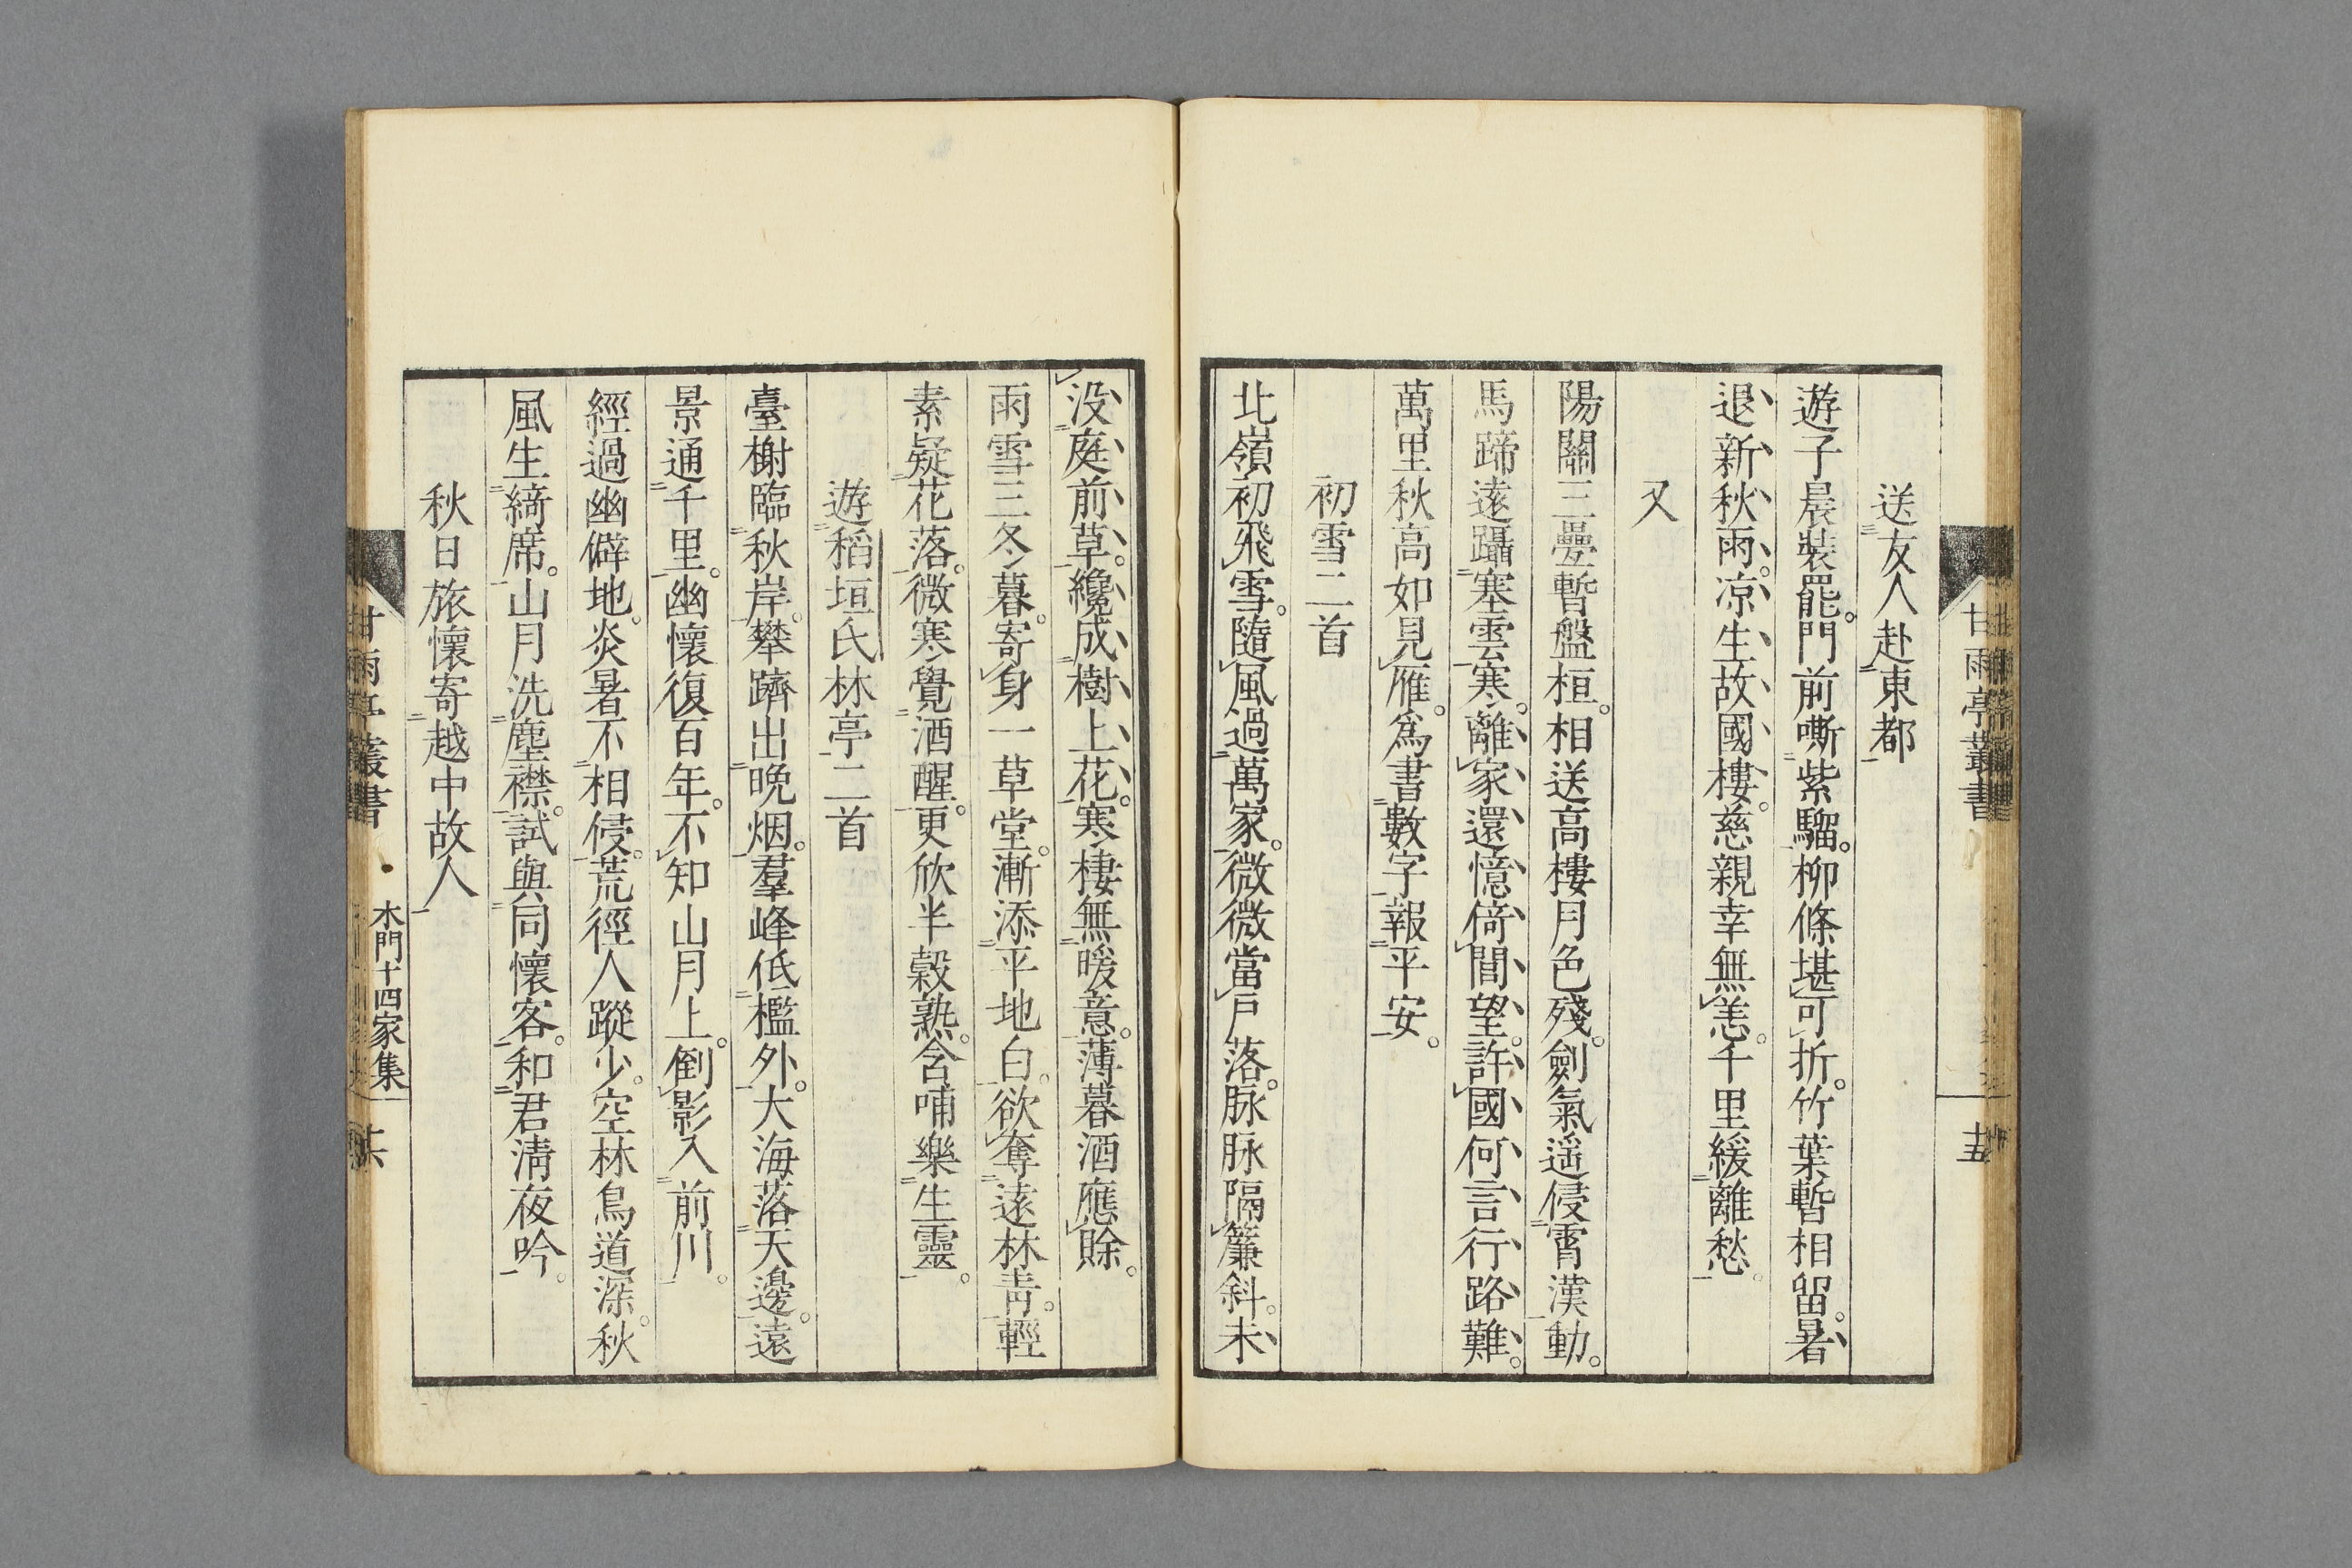 甘雨亭叢書
十五
送友人赴東都
遊子晨裝罷。門前嘶紫騮。柳條堪可折。竹葉暫相留。暑
退新秋雨。凉生故國樓。慈親幸無恙。千里緩離愁。
又
陽關三疊暫盤桓。相送高樓月色殘。劍氣遥侵霄漢動。
馬蹄遠躡塞雲寒。離家還憶倚閭望。許國何言行路難。
萬里秋高如見雁。爲書數字報平安。
初雪二首
北嶺初飛雪。隨風過萬家。微微當戶落。脉脉隔簾斜。未
没庭前草。纔成樹上花。寒棲無暖意。薄暮酒應賖。
雨雪三冬暮。寄身一草堂。漸添平地白。欲奪遠林靑。輕
素疑花落。微寒覺酒醒。更欣半穀熟。含哺樂生靈。
遊稻垣氏林亭二首
臺榭臨秋岸。攀躋出晚烟。羣峰低檻外。大海落天邊。遠
景通千里。幽懷復百年。不知山月上。倒影入前川。
經過幽僻地。炎暑不相侵。荒徑人蹤少。空林鳥道深。秋
風生綺席。山月洗塵襟。試與同懷客。和君淸夜吟。
秋日旅懷寄越中故人
甘雨亭叢書
木門十四家集
十六